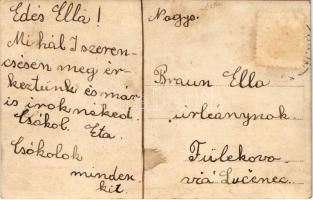 Edés Ella!
Mi hál I szeren-
csésen meg ér-
keztünk és már
is irok néked.
Csókol. Eta.
Csókolok
minden
kit.
Nagys.
Braun Ella
úrleánynak.
Fülekova-
via Lučenec.